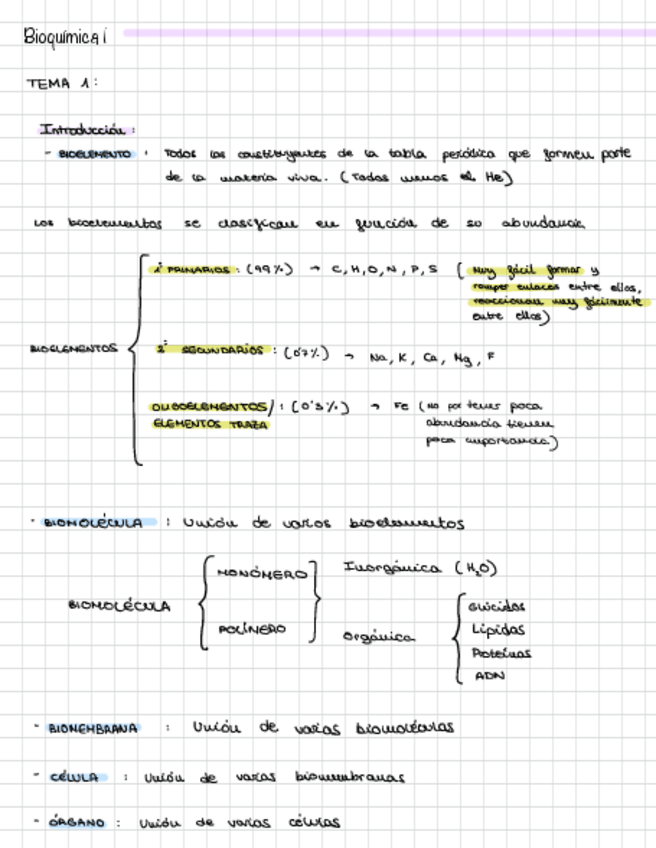 Bioquímica I
TEMA 1:
Introducción:
- BIOELEMENTO: Todos los constituyentes de la tabla periódica que formen parte
de la materia viva. (Todos menos el He)
Los bioelementos se clasifican en función de su abundancia
BIOELEMENTOS
1º PRIMARIOS: (99%) → C, H, O, N, P, S (Muy fácil formar y
romper enlaces entre ellos,
reaccionan muy fácilmente
entre ellos)
2º SECUNDARIOS: (0'7%) → Na, K, Ca, Mg, F
OLIGOELEMENTOS/: (0'3%) → Fe (No por tener poca
ELEMENTOS TRAZA abundancia tienen
poca importancia)
· BIOMOLÉCULA: Unión de varios bioelementos
BIOMOLÉCULA
MONÓMERO
POLÍMERO
Inorgánica (H₂O)
Orgánica
Glúcidos
Lípidos
Proteínas
ADN
- BIOMEMBRANA: Unión de varias biomoléculas
- CÉLULA: Unión de varias biomembranas
- ÓRGANO: Unión de varias células